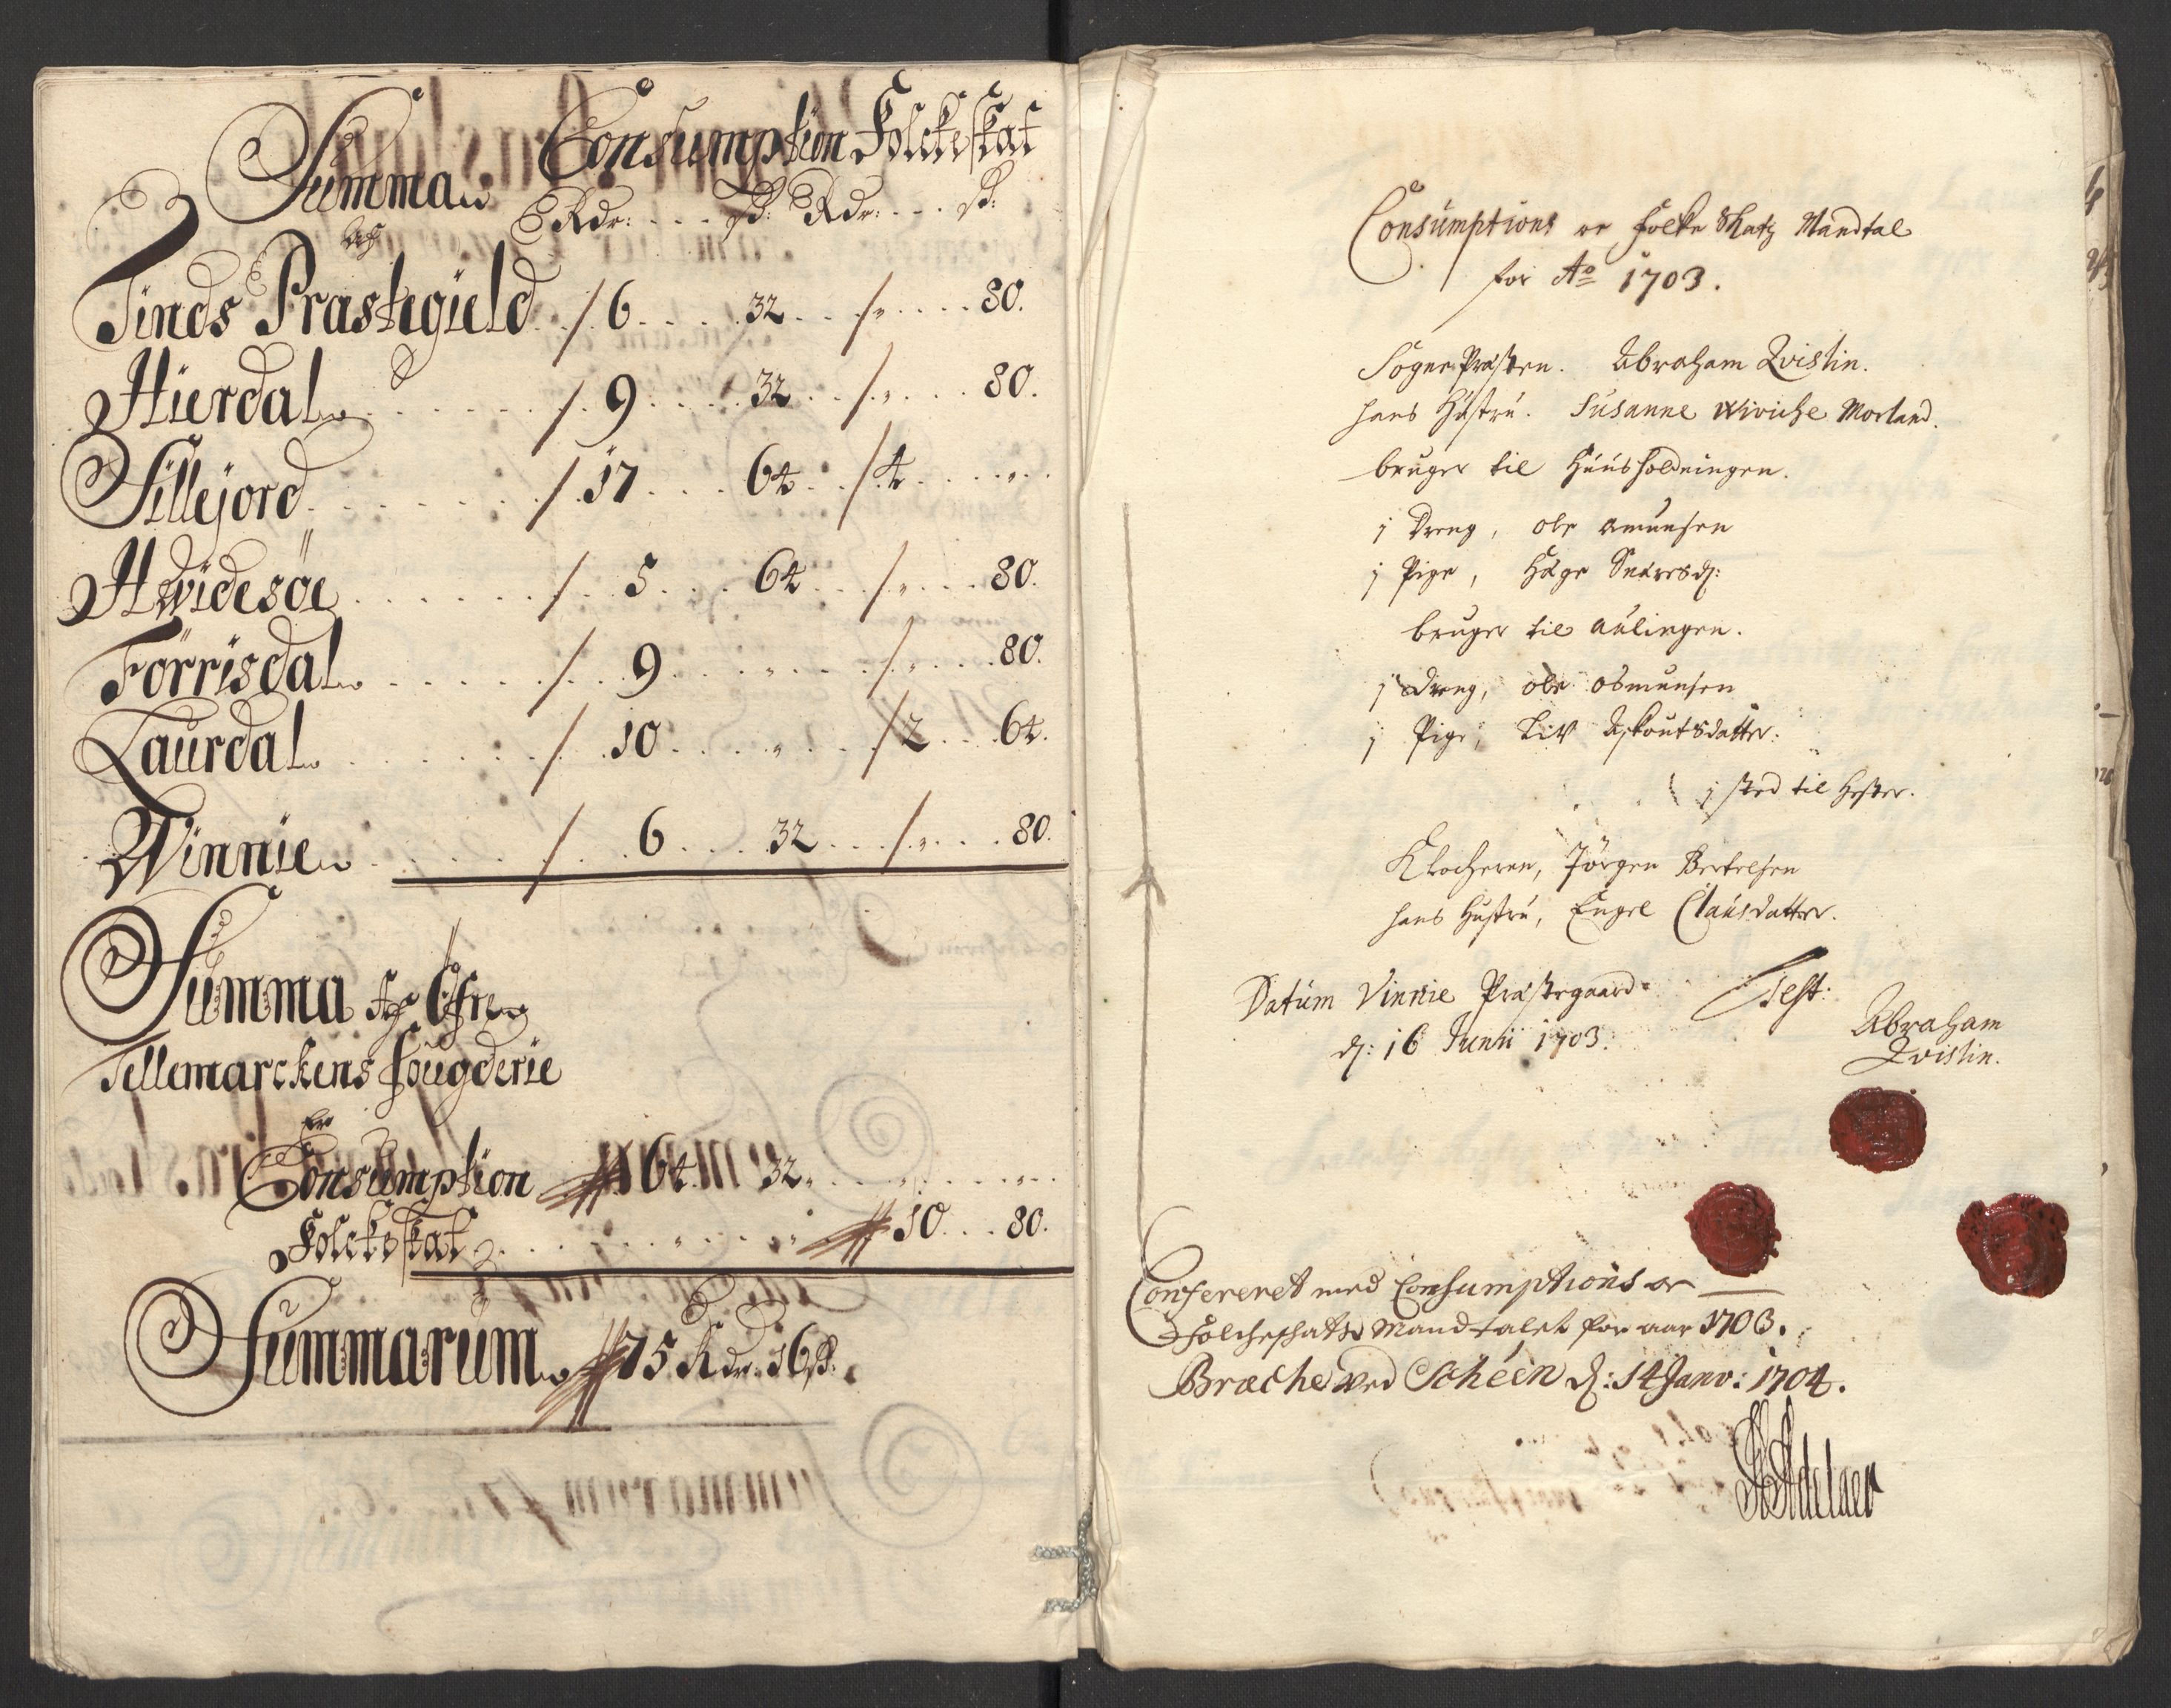 Consumption Folckeskat
Summa
Rdr: ß: Rdr: ß:
Af
Tinds Prästegield 6 32 " 80.
Hierdal 9 32 " 80.
Sillejord 17 64 4 "
Hwidesöe 5 64 " 80.
Förrisdal 9 " " 80.
Laurdal 10 " 2 64.
Winnie 6 32 " 80.
Summa Af Öfre
Tellemarckens fougderie
Er
Consumption 64 32 "
Folckeskat " " 10 80.
Summarum 75 Rdr: 16 ß.
Consumptions oc folke Skatz Mandtal
for Ao 1703.
SognePræsten. Abraham Qvislin.
hans Hustru. Susanne Wiviche Morland.
bruger til Huusholdningen.
j Dreng, ole Amunsen
j Pige, Häge
bruger til aulingen.
j Dreng, ole osmunsen
j Pige, Liv datter.
j sted til Hester.
Klocheren, Jörgen Bertelsen
hans Hustru, Engel Clausdatter.
Datum Vinnie Præstegaard Test:
d: 16 Junii 1703.
Abraham
Qvislin.
Confereret med Consumptions oc
Folcheschatts Mandtalet for aar 1703.
Brache ved Schéen d: 14 Janv: 1704.
Adelaer